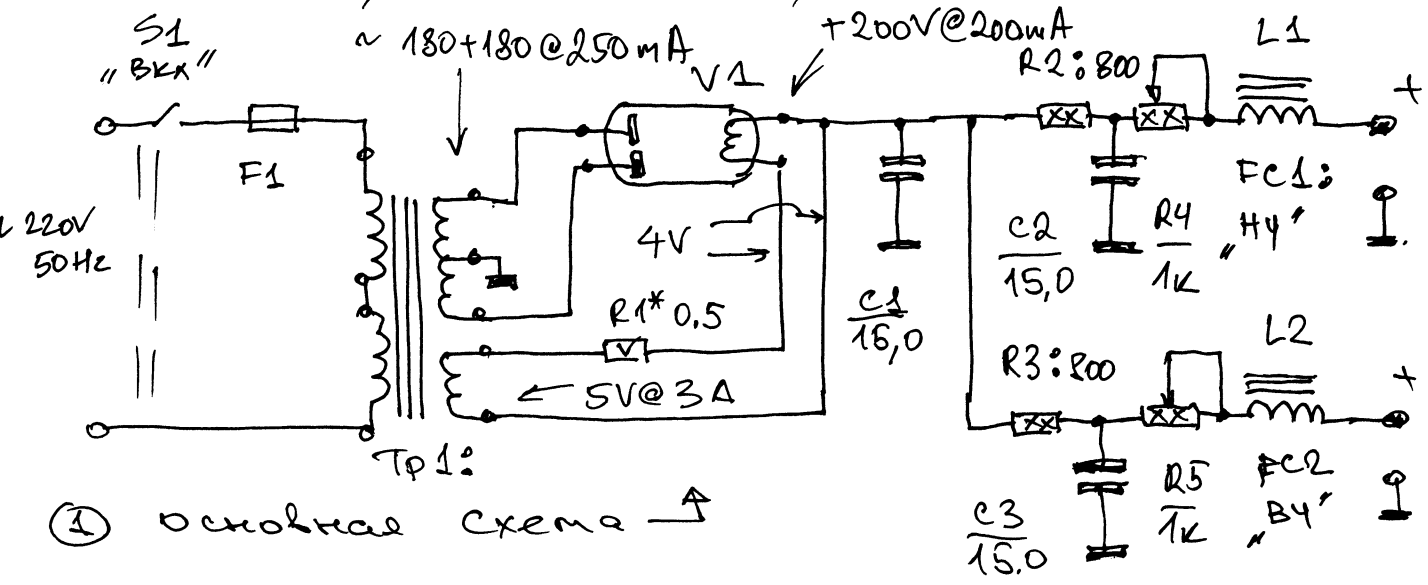 S1
„ВКЛ"
~ 180+180@250mA
V1
+200V@200mA
R2:800
L1
+
F1
~ 220V
50Hz
4V
R1* 0.5
5V@3A
C1
15,0
C2
15,0
R4
1к
FC1:
„НЧ"
R3:800
L2
+
Тр1:
C3
15.0
R5
1к
FC2
„ВЧ"
1 основная схема